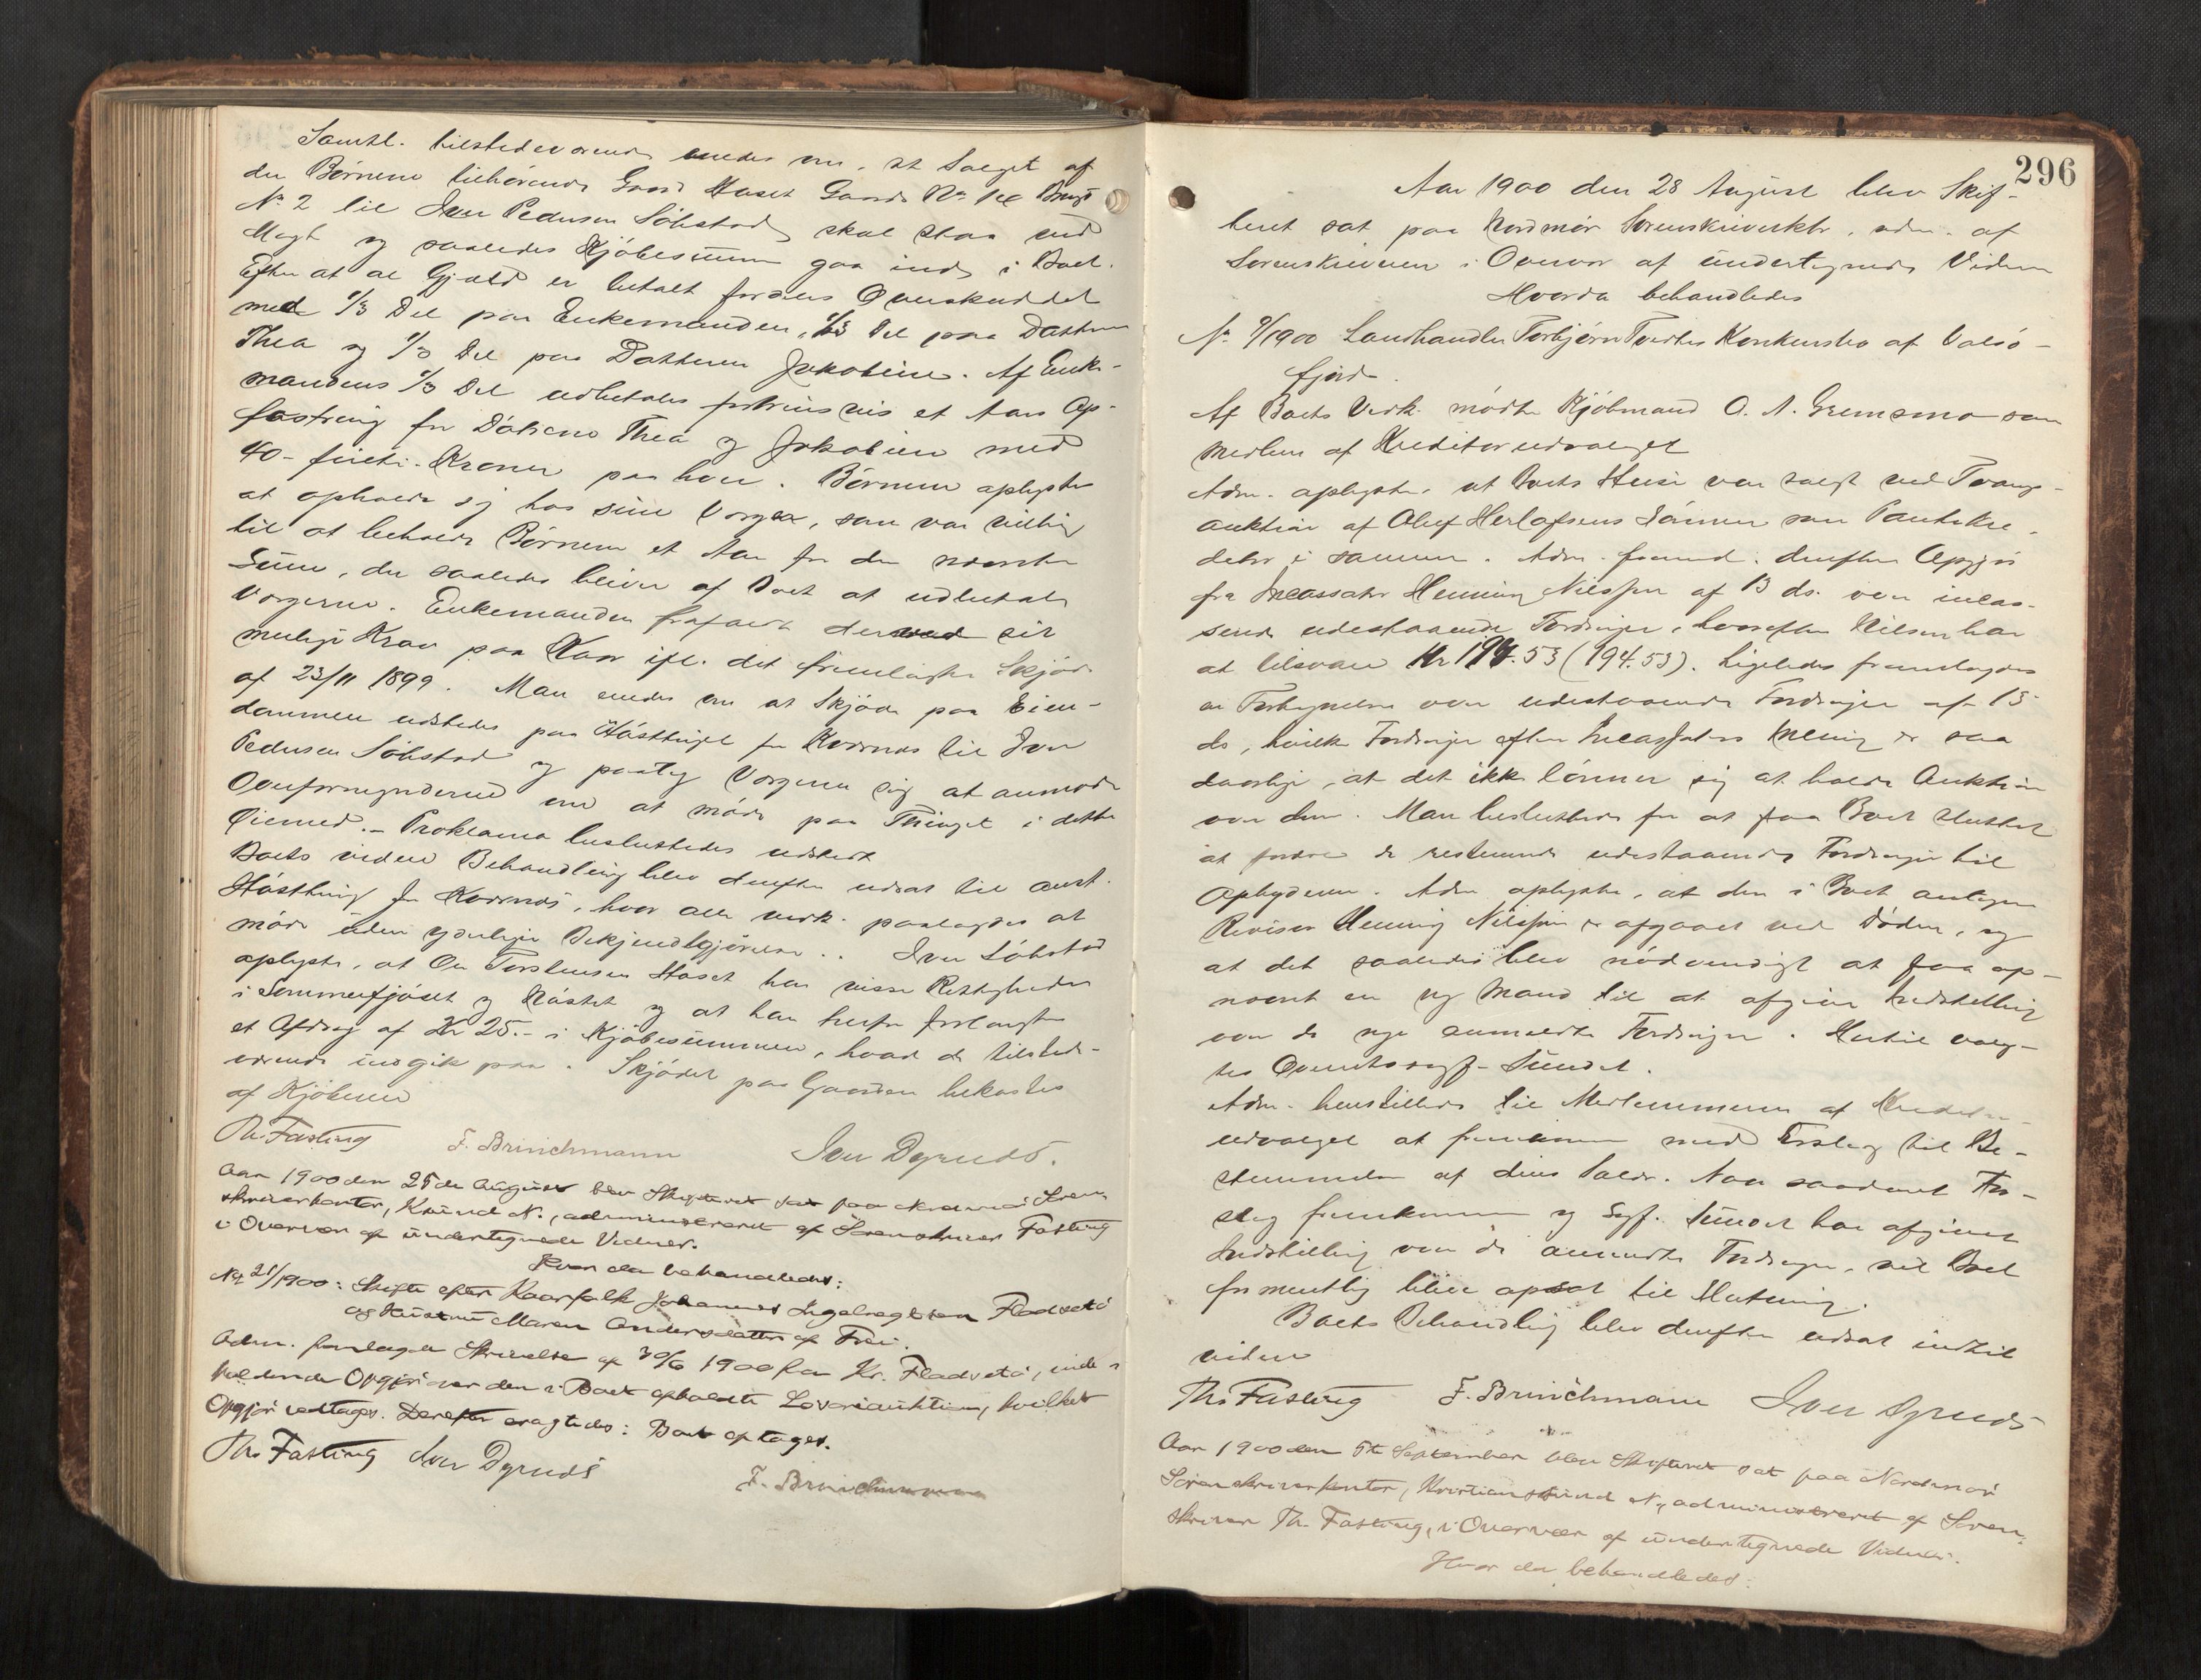 Samtl. tilstedeværende enedes om, at Salget af
den Børnene tilhørende Gaard Haset Gaards No Brugs
No 2 til Iver Pedersen Söbstad skal staa ved
Magt og saaledes Kjöbesummen gaa ind i Boet.
Efter at al Gjæld er betalt fordeles Overskuddet
med 1/3 Del paa Enkemanden, 1/3 Del paa Datteren
Thea og 1/3 Del paa Datteren Jakobine. Af Enke-
mandens 1/3 Del udbetales et Aars Op-
fostring for Døtrene Thea og Jakobine med
40 - firti - Kroner paa hver. Børnene oplystes
at opholde sig hos sine Verger, som var villig
til at beholde Børnene et Aar for den nævnte
Summe, der saaledes bliver af Boet at udbetale
Vergerne. Enkemanden frafaldt derved sit
mulige Krav paa Kaar ifl. det fremlagte Skjöde
af 23/11 1899. Man enedes om at Skjöde paa Eien-
dommen udstedes paa Høstthinget for Kværnæs til Iver
Pedersen Söbstad og paatog Vergerne sig at anmode
Overformynderiet om at möde paa Thinget i dette
Øiemed. - Proklama besluttedes udstedt
Boets videre Behandling blev derefter udsat til anst.
Høstthing for Kværnæs, hvor alle vedk. paalagdes at
møde uden yderligere Bekjendtgjørelse. Iver Söbstad
oplyste, at Ole Torstensen Haset har visse Rettigheder
i Sommerfjöset og Nøstet og at han herfor forlangte
et Afdrag af Kr 25.- i Kjöbesummen, hvad de tilstede-
værende indgik paa. Skjödet paa Gaarden bekostes
af Kjöberen
Th. Fasting F. Brinchmann Iver Dyrnes.
Aar 1900 den 25de August blev Skifteret sat paa Nordmör Soren-
skriverkontor, Kr.sund N., administreret af Sorenskriver Fasting
i Overvær af undertegnede Vidner.
Hvor da behandledes:
No 21/1900: Skifte efter Kaarfolk Johannes Ingebregtsen Fladsetö
og Hustru Maren Andersdatter af Frei.
Adm. fremlagde Skrivelse af 30/6 1900 fra Kr. Fladsetö, inde-
holdende Opgjör over den i Boet afholdte Lösöreauktion, hvilket
Opgjör vedtages. Derefter eragtedes: Boet optages.
Th. Fasting Iver Dyrnes
F. Brinchmann
296
Aar 1900 den 28 August blev Skif-
teret sat paa Nordmör Sorenskriverktr. adm. af
Sorenskriveren i Overvær af undertegnede Vidner
Hvorda behandledes
No 9/1900 Landhandler Torbjörn Tveites Konkursbo af Valsö-
fjord.
Af Boets Vedk. mødte Kjöbmand O. A. Grimsmo som
Medlem af Kreditorudvalget
Adm. oplyste, at Boets Huse var solgt ved Tvangs-
auktion af Oluf Herlofsens Sönner som Pantekre-
ditor i samme. Adm. freml. derefter Opgjör
fra Incassator Henning Nilssen af 13 ds. over incas-
serede udestaaende Fordringer, hvorefter Nilssen har
at tilsvare Kr 194.53 (194.53). Ligeledes fremlagdes
en Fortegnelse over udestaaende Fordringer af 13
ds, hvilke Fordringer efter Incassators Mening er saa
daarlige, at det ikke lönner sig at holde Auktion
over dem. Man besluttede for at faa Boet sluttet
at fordele de resterende udestaaende Fordringer til
Opbyderen. Adm oplyste, at den i Boet antagne
Revisor Henning Nilssen er afgaaet ved Döden, og
at det saaledes blev nödvendigt at faa op-
nævnt en ny Mand til at afgive Indstilling
over de nye anmeldte Fordringer. Hertil valg-
tes Overretssagf. Sundet.
Adm. henstillede til Medlemmerne af Kreditor-
udvalget at fremkomme med Forslag til Be-
stemmelse af dens Salær. Naar saadant For-
slag fremkommer og Sagf. Sundet har afgivet
Indstilling over de anmeldte Fordringer, vil Boet
formentlig blive opsat til Slutning.
Boets Behandling blev derefter udsat indtil
videre
Th. Fasting F. Brinchmann Iver Dyrnes
Aar 1900 den 5te September blev Skifteret sat paa Nordmör
Sorenskriverkontor, Kristianssund N., administreret af Soren-
skriver Th. Fasting, i Overvær af undertegnede Vidner.
Hvor da behandledes: